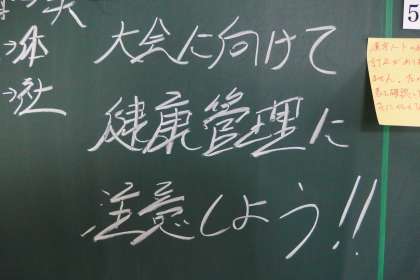 大会に向けて
健康管理に
注意しよう!!
→体
→社
5